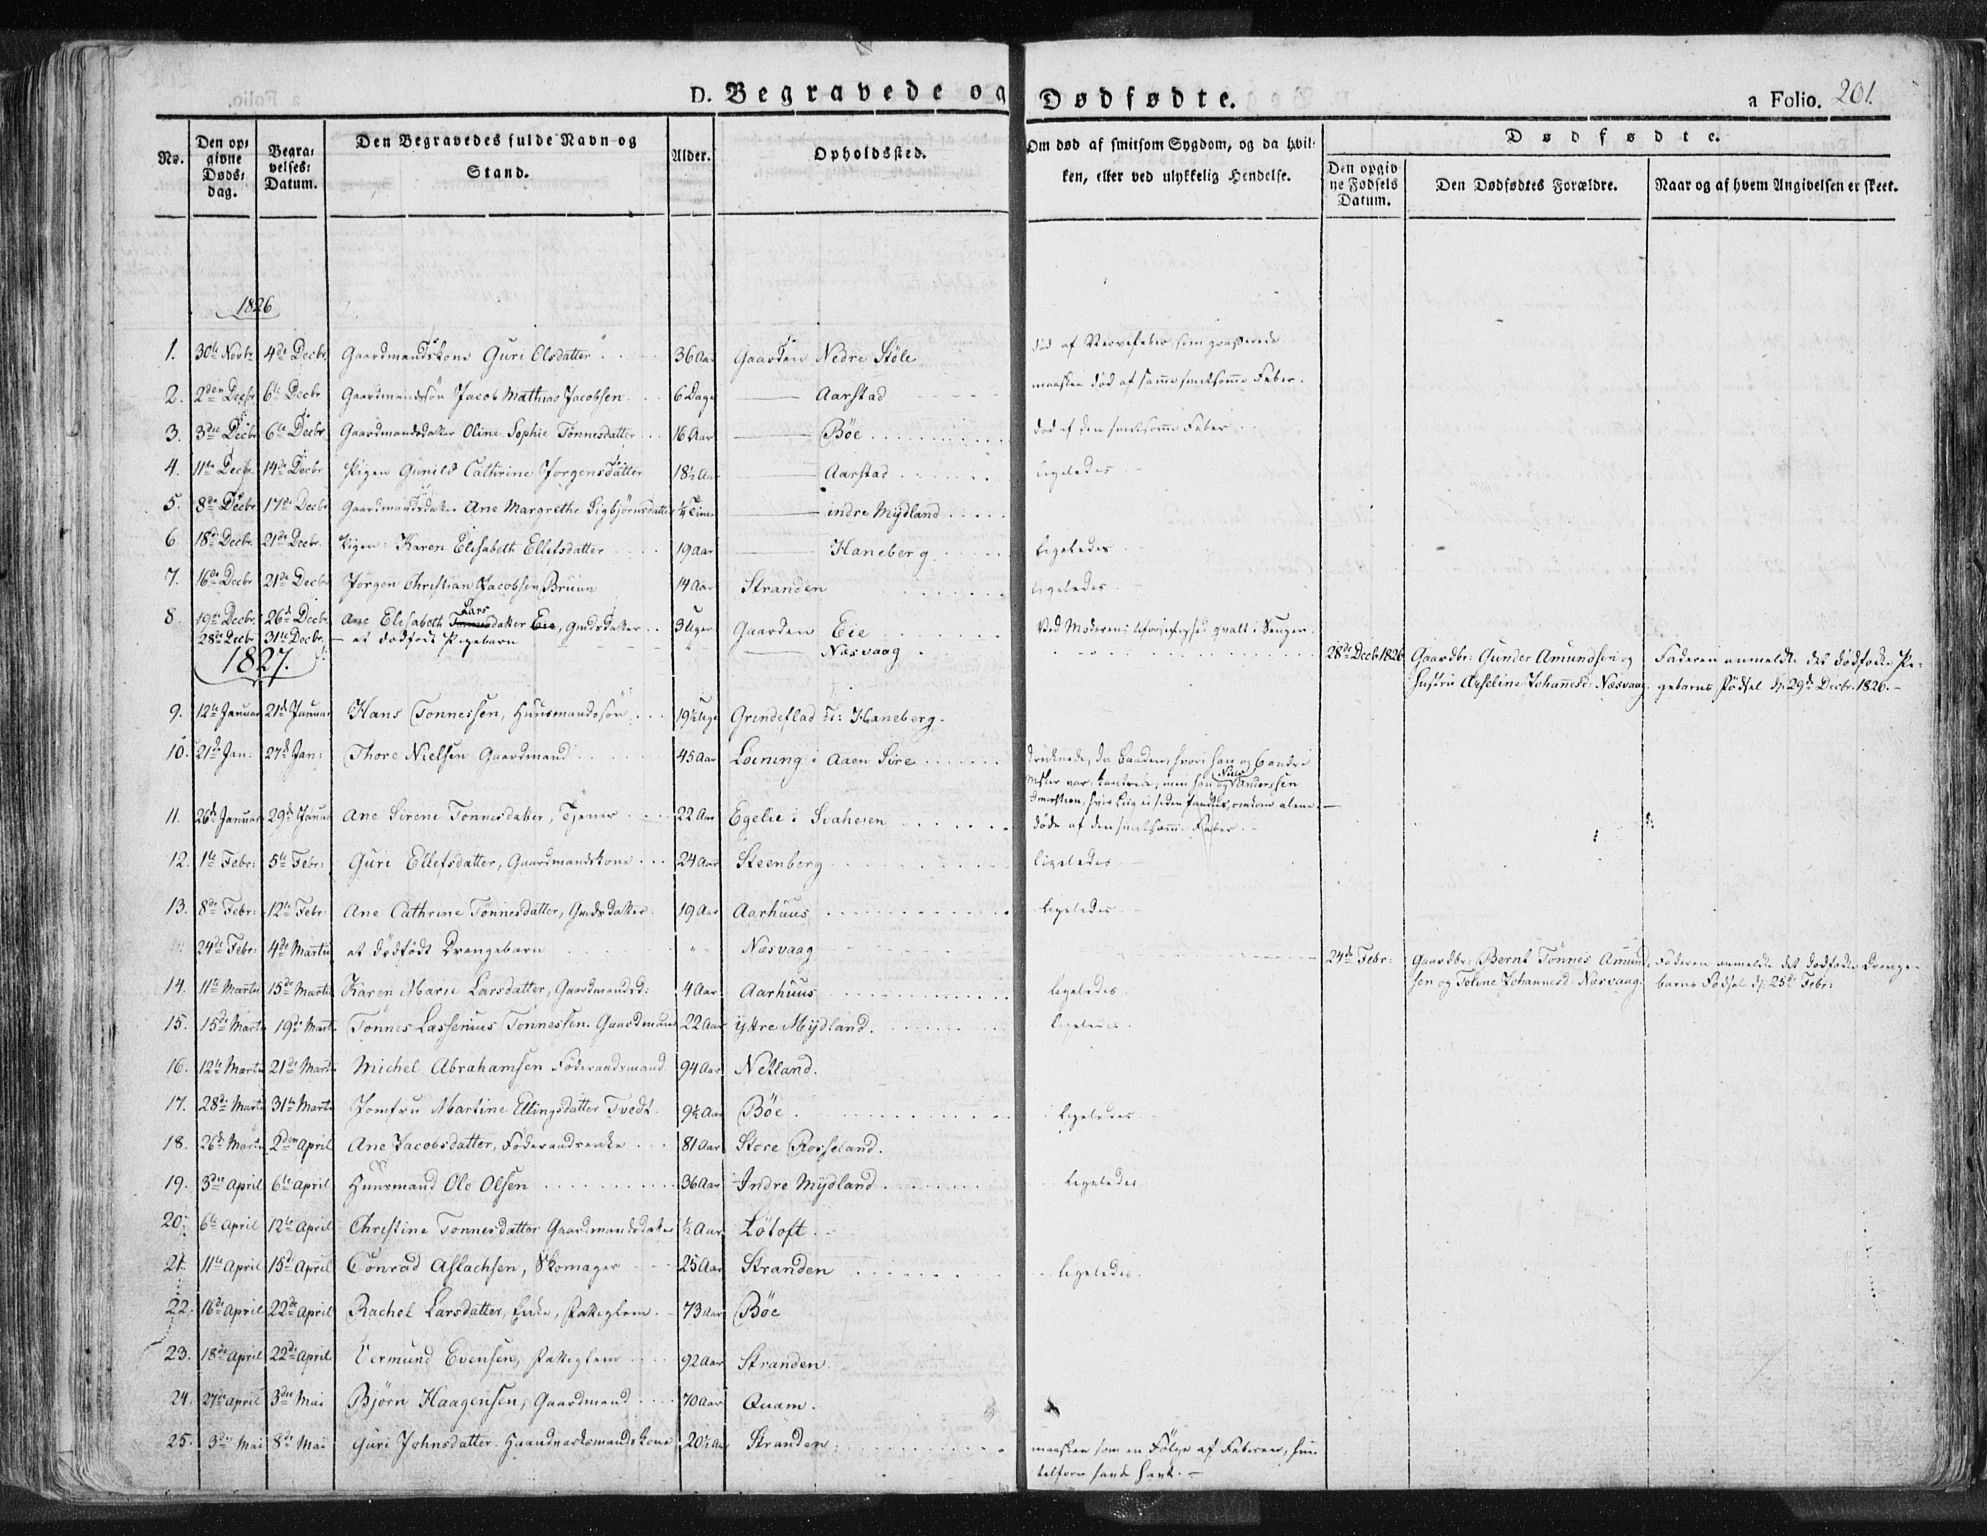 D. Begravede og Dødfødte. a Folio. 201.
No. Den opgivne Døds-dag. Begravelses-Datum. Den Begravedes fulde Navn og Stand. Alder. Opholdssted. Om død af smitsom Sygdom, og da hvilken, eller ved ulykkelig Hendelse. Dødfødte.
Den opgivne Fødsels Datum. Den Dødfødtes Forældre. Naar og af hvem Angivelsen er skeet.
1826
1. 30te Novbr 4de Decbr. Gaardmandskone Guri Olsdatter 36 Aar Gaarden Nedre Støle død af Nervefeber, som grasserede
2. 2den Decbr 6te Decbr Gaardmandssøn Jacob Mathias Jacobsen 6 Dage Aarstad maaskee død af samme smitsomme Feber.
3. 3die Decbr 6te Decbr Gaardmandsdatter Oline Sophie Tønnesdatter 16 Aar Bøe død af den smitsomme Feber
4. 11te Decbr 14de Decbr Pigen Gunild Cathrine Jørgensdatter 18½ Aar Aarstad ligeledes
5. 8de Decbr 17de Decbr Gaardmandsdatter Ane Margrethe Sigbjørnsdatter ¼ Time indre Mydland
6. 18de Decbr. 21de Decbr. Pigen Karen Elisabeth Ellefsdatter 19 Aar Haneberg ligeledes
7. 16de Decbr 21de Decbr Jørgen Christian Jacobsen Bruun 14 Aar Stranden ligeledes
8. 19de Decbr. 26de Decbr. Ane Elisabeth Lars Tønnesdatter Eie, Gmdsdatter 3 Uger Gaarden Eie Ved Moderens Uforsigtighed qvalt i Sengen
28de Decbr 31te Decbr. et dødfødt Pigebarn Næsvaag 28de Decbr 1826 Gaardbr: Gunder Amundsen og Faderen anmeldte det dødfødte Pi-
1827. Hustru Axeline Johannesd: Næsvaag. gebarns Fødsel d. 29de Decbr. 1826.
9. 12te Januar 21de Januar Hans Tønnessen, Huusmandssøn 19½ Uge Grindeflad u: Haneberg.
10. 21de Jan. 27de Jan: Thore Nielsen Gaardmand 45 Aar Loining i Aaen Sire druknede, da Baaden, hvori han og 6 andre
var kantrede, men han og Niels Anderssen
omkom alene
11. 26de Januar 29de Januar Ane Sirene Tønnesdatter, Tjener 22 Aar Egelie i Svahesen døde af den smitsomme Feber.
12. 1te Febr: 5te Febr: Guri Ellefsdatter, Gaardmandskone 24 Aar Steenberg ligeledes
13. 8de Febr: 12te Febr: Ane Cathrine Tønnesdatter, Gmdsdatter 19 Aar Aarhuus ligeledes
24de Febr: 4de Martii et dødfødt Drengebarn Næsvaag 24de Febr: Gaardbr: Bernt Tønnes Amund- Faderen anmeldte det dødfødte Drenge-
sen og Toline Johannesd: Næsvaag. barns Fødsel d. 25de Febr:
14. 11te Martii 15de Martii Karen Marie Larsdatter, Gaardmandsd: 4 Aar Aarhuus ligeledes
15. 15de Martii 19de Martii Tønnes Lassenius Tønnessen. Gaardmand 22 Aar Ytre Mydland. ligeledes.
16. 12te Martii 21de Martii Michel Abrahamsen Føderaadsmand 94 Aar Netland.
17. 28de Martii 31te Martii Jomfru Martine Ellingsdatter Tvedt. 9½ Aar Bøe ligeledes
18. 26de Martii 2den April Ane Jacobsdatter, Føderaadsenke 81 Aar Store Rosseland.
19. 3die April 6te April Huusmand Ole Olsen 36 Aar Indre Mydland ligeledes
20. 6te April 12te April Christine Tønnesdatter Gaardmandsdatter ½ Aar Løtoft.
21. 11te April 15de April Conrad Aslachsen, Skomager 25 Aar Stranden ligeledes.
22. 16de April 22de April Rachel Larsdatter, Enke, Fattiglem. 73 Aar Bøe
23. 18de April 22de April Vermund Evensen, Fattiglem 92 Aar Stranden.
24. 27de April 3die Mai Bjørn Haagensen, Gaardmand 70 Aar Quam.
25. 3die Mai 8de Mai Guri Johnsdatter. Haandverksmandskone 20½ Aar Stranden. maaskee som en Følge af Feberen, hun
tilforn havde havt.